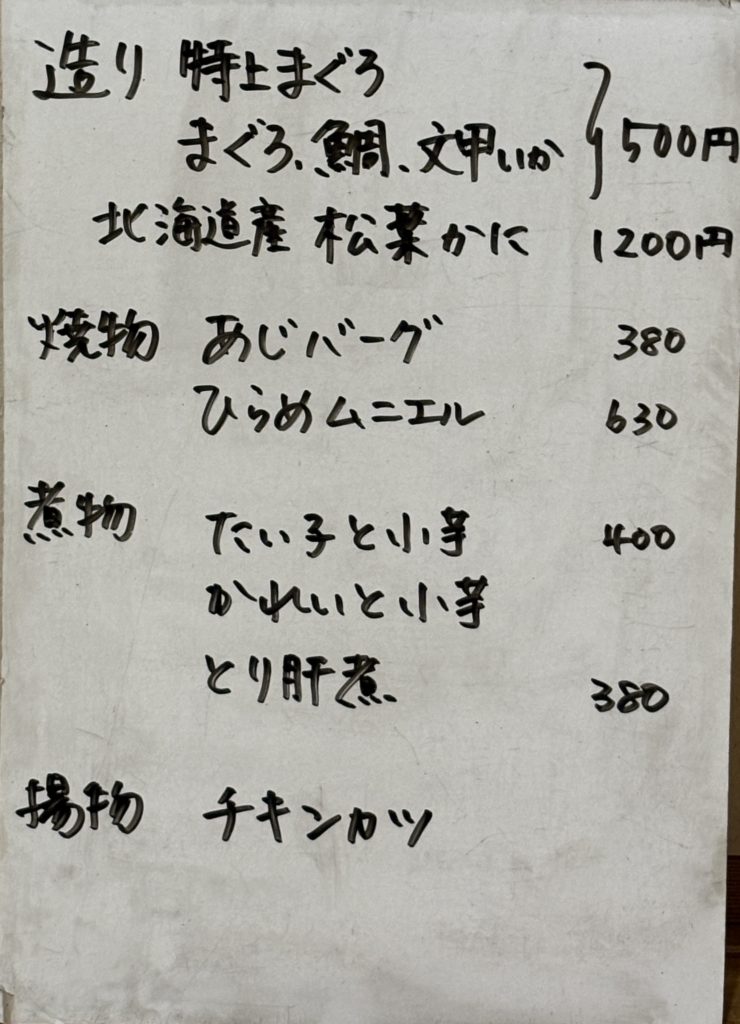 造り 特上まぐろ
まぐろ、鯛、文甲いか 500円
北海道産 松葉かに 1200円
焼物 あじバーグ 380
ひらめムニエル 630
煮物 たい子と小芋 400
かれいと小芋
とり肝煮 380
揚物 チキンカツ